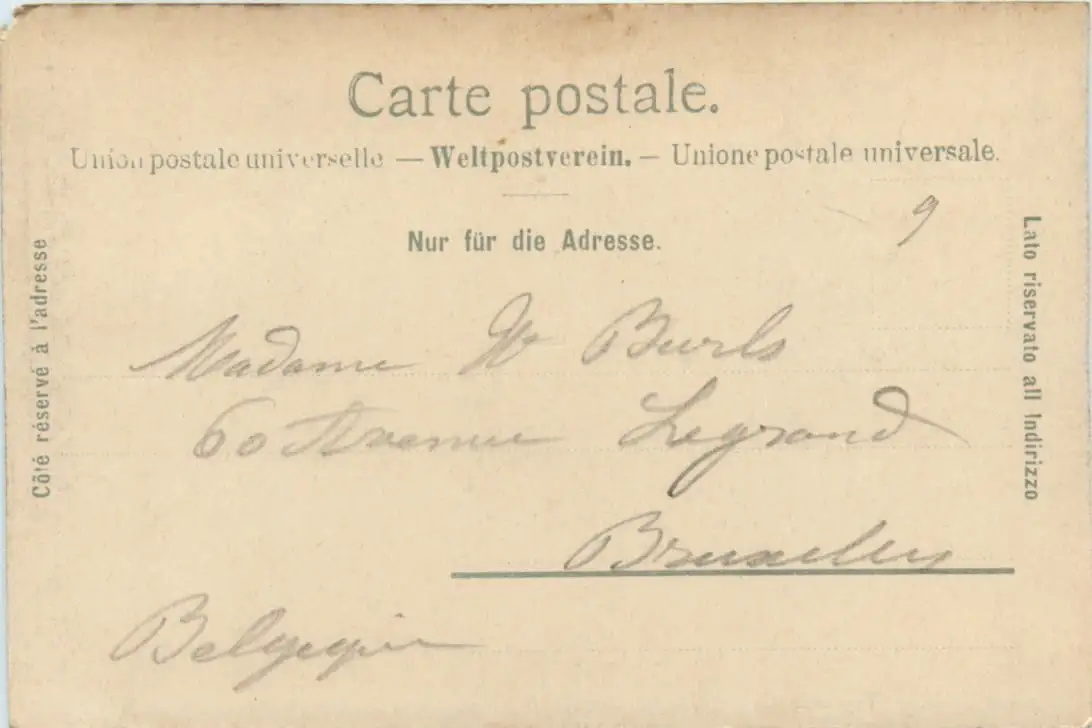 Carte postale.
Union postale universelle — Weltpostverein. — Unione postale universale.
9
Nur für die Adresse.
Côté réservé à l'adresse
Lato riservato all Indirizzo
Madame W Burls
60 Avenue Legrand
Bruxelles
Belgique